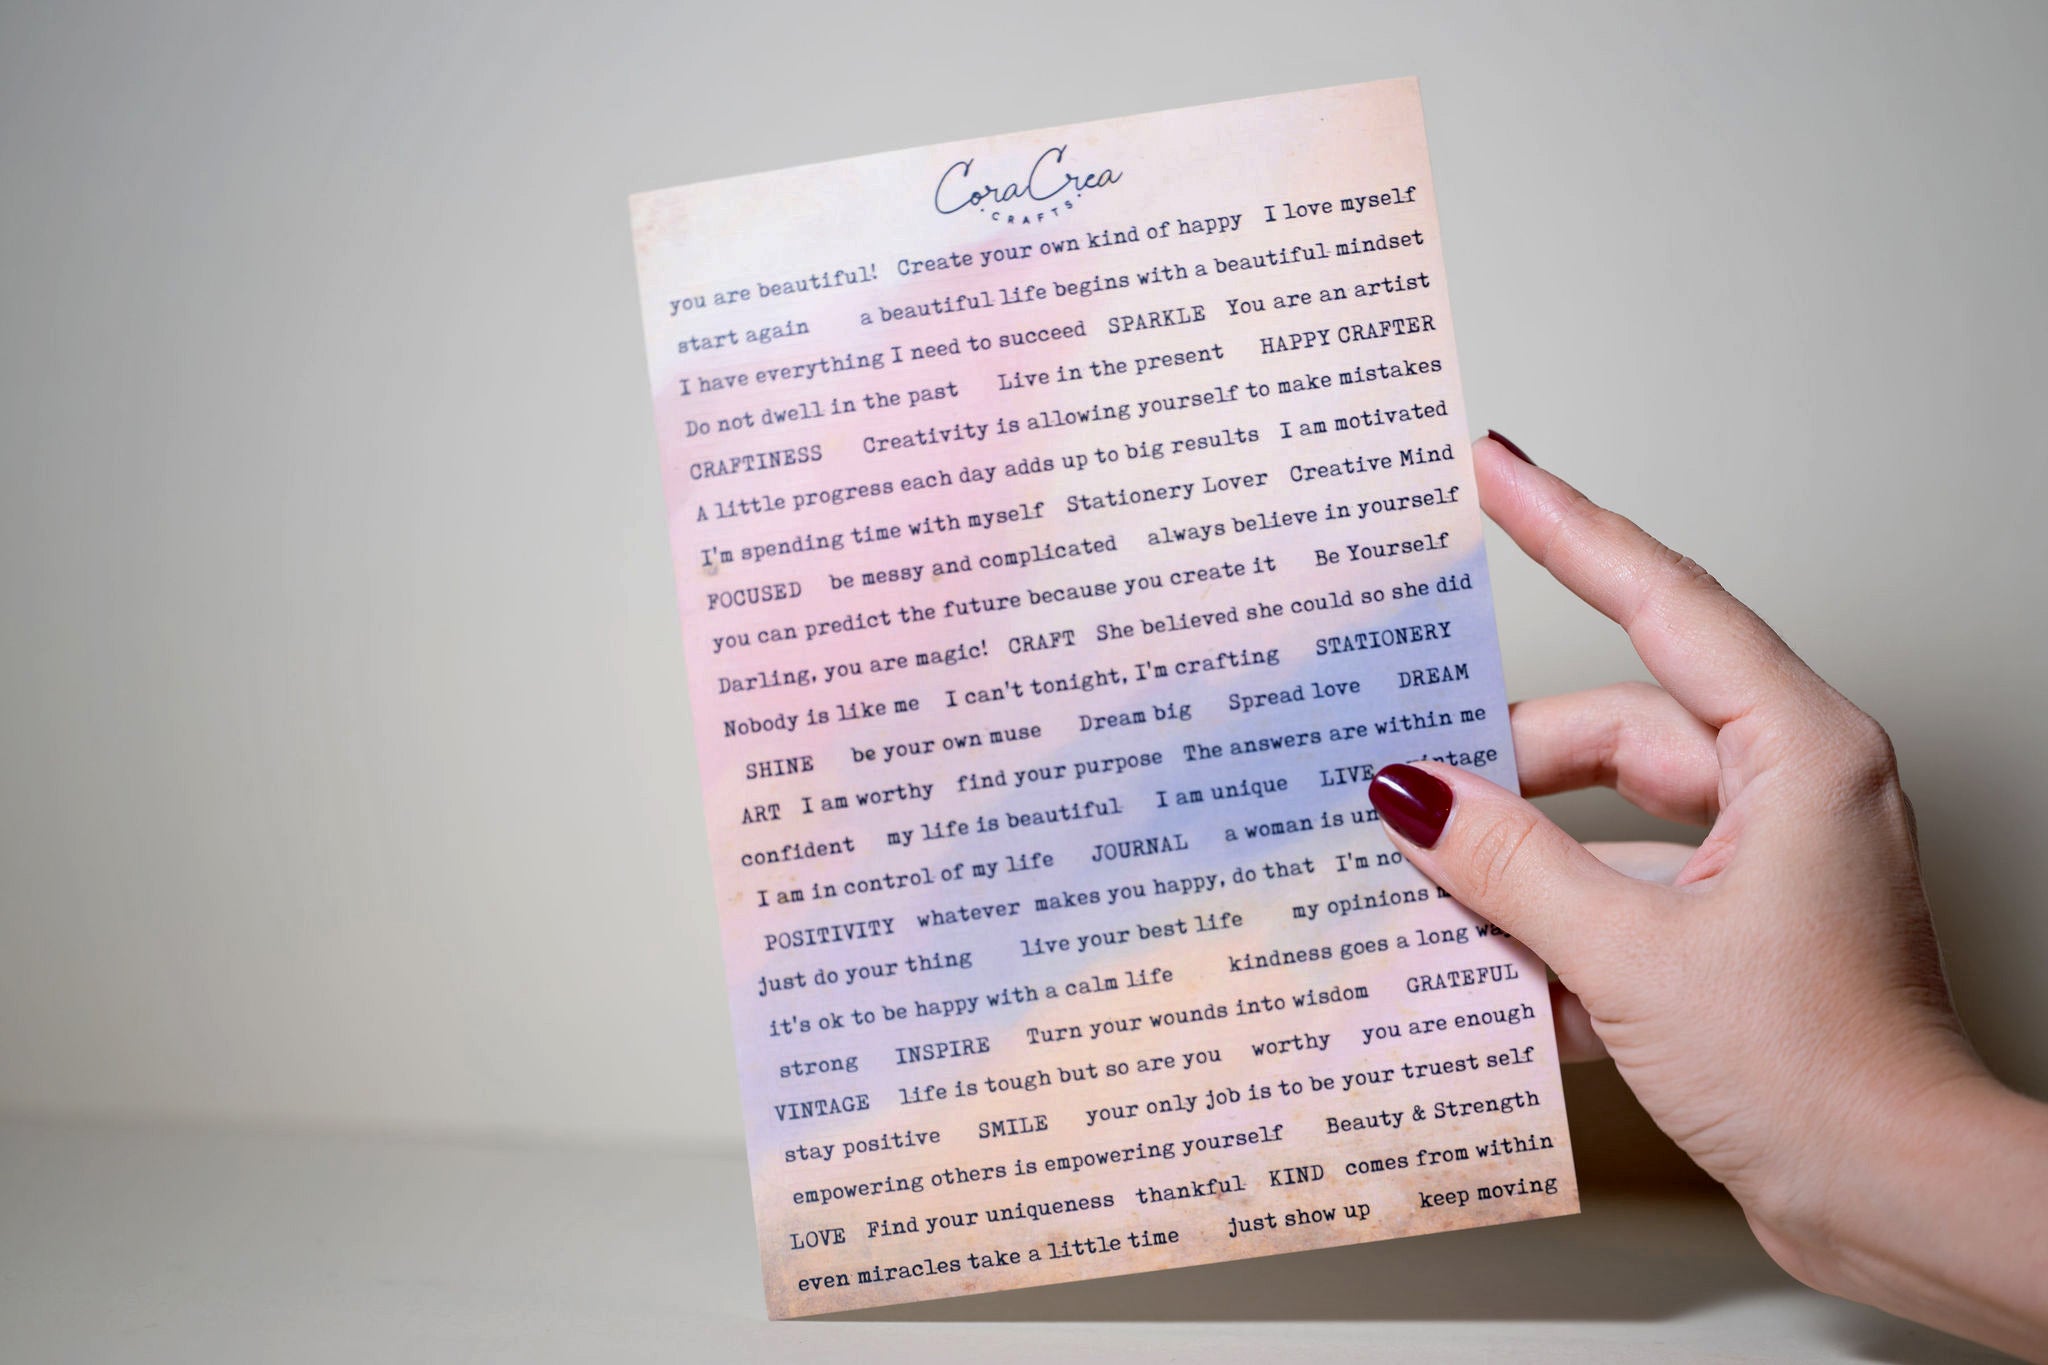 CoraCrea
CRAFTS
you are beautiful! Create your own kind of happy I love myself
start again a beautiful life begins with a beautiful mindset
I have everything I need to succeed SPARKLE You are an artist
Do not dwell in the past Live in the present HAPPY CRAFTER
CRAFTINESS Creativity is allowing yourself to make mistakes
A little progress each day adds up to big results I am motivated
I'm spending time with myself Stationery Lover Creative Mind
FOCUSED be messy and complicated always believe in yourself
you can predict the future because you create it Be Yourself
Darling, you are magic! CRAFT She believed she could so she did
Nobody is like me I can't tonight, I'm crafting STATIONERY
SHINE be your own muse Dream big Spread love DREAM
ART I am worthy find your purpose The answers are within me
confident my life is beautiful I am unique LIVE vintage
I am in control of my life JOURNAL a woman is
POSITIVITY whatever makes you happy, do that I'm
just do your thing live your best life my opinions
it's ok to be happy with a calm life kindness goes a long way
strong INSPIRE Turn your wounds into wisdom GRATEFUL
VINTAGE life is tough but so are you worthy you are enough
stay positive SMILE your only job is to be your truest self
empowering others is empowering yourself Beauty & Strength
LOVE Find your uniqueness thankful KIND comes from within
even miracles take a little time just show up keep moving